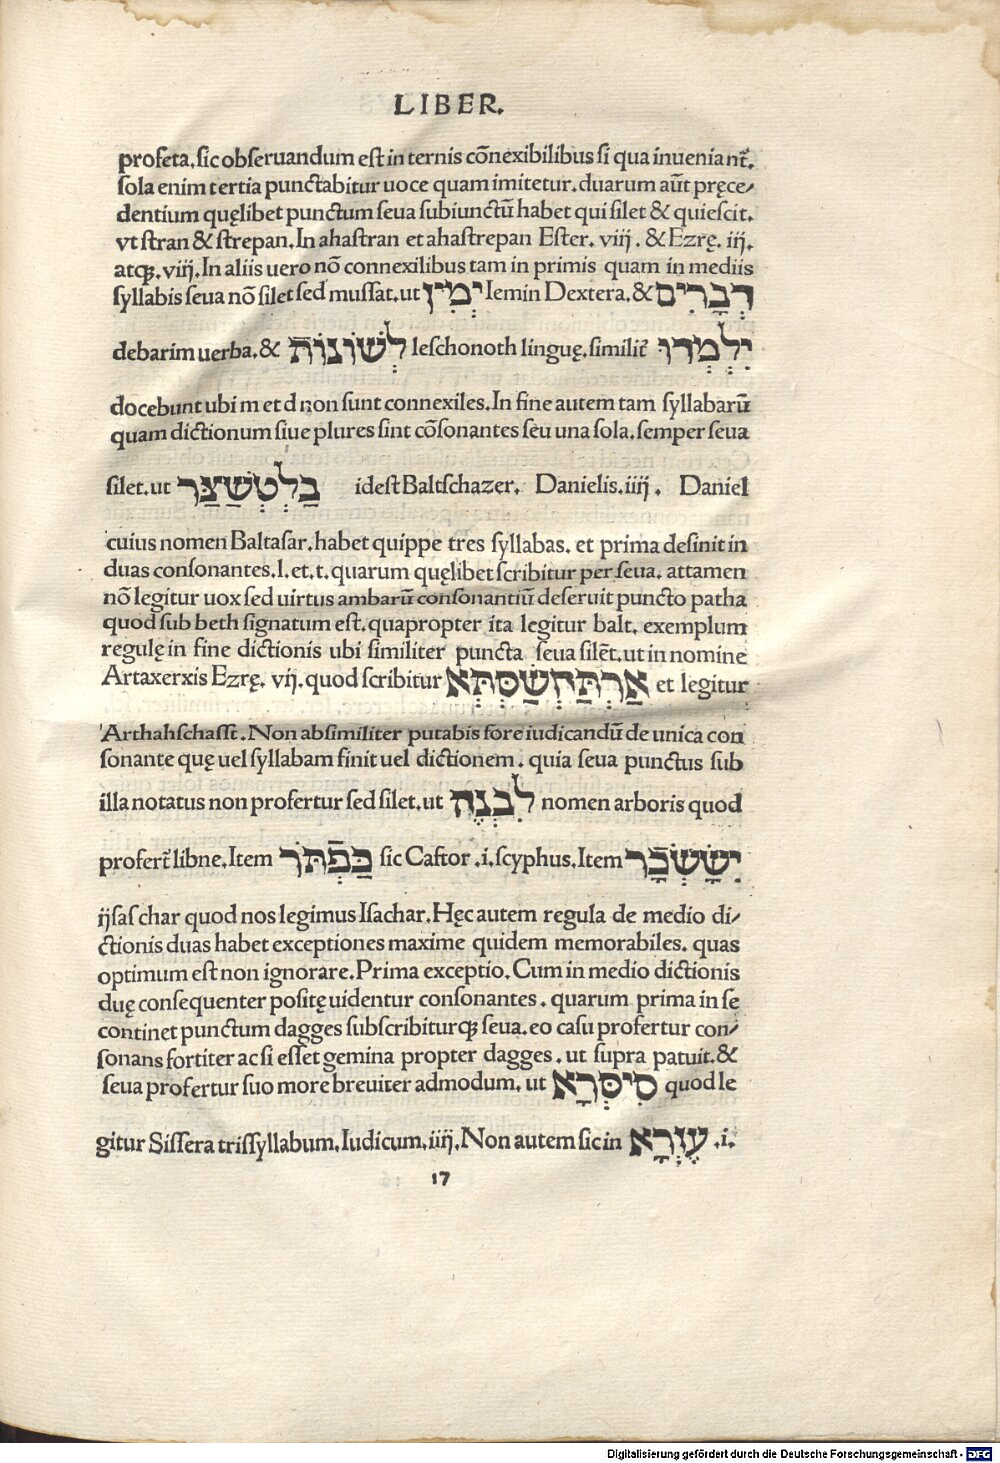 LIBER.
profeta. sic obſeruandum eſt in ternis cōnexibilibus ſi qua inueniant̄.
ſola enim tertia punctabitur uoce quam imitetur. duarum aūt pręce/
dentium quęlibet punctum ſeua ſubiunctū habet qui ſilet & quieſcit.
vt ſtran & ſtrepan. In ahaſtran et ahaſtrepan Eſter. viij. & Ezrę. iij.
atqꝫ. viij. In aliis uero nō connexilibus tam in primis quam in mediis
ſyllabis ſeua nō ſilet ſed muſſat. ut יְמִין Iemin Dextera. & דְּבָרִים
debarim uerba. & לְשׁוֹנוֹת leſchonoth linguę. ſimilit̄ יִלְמְדוּ
docebunt ubi m et d non ſunt connexiles. In fine autem tam ſyllabarū
quam dictionum ſiue plures ſint cōſonantes ſeu una ſola. ſemper ſeua
ſilet. ut בַּלְטְשַׁצַּר ideſt Baltſchazer. Danielis. iiij. Daniel
cuius nomen Baltaſar. habet quippe tres ſyllabas. et prima deſinit in
duas conſonantes. l. et. t. quarum quęlibet ſcribitur per ſeua. attamen
nō legitur uox ſed uirtus ambarū conſonantiū deſeruit puncto patha
quod ſub beth ſignatum eſt. quapropter ita legitur balt. exemplum
regulę in fine dictionis ubi ſimiliter puncta ſeua ſilēt. ut in nomine
Artaxerxis Ezrę. vij. quod ſcribitur אַרְתַּחְשַׁסְתְּא et legitur
Arthahſchaſſt. Non abſimiliter putabis fore iudicandū de unica con
ſonante quę uel ſyllabam finit uel dictionem. quia ſeua punctus ſub
illa notatus non profertur ſed ſilet. ut לִבְנֶה nomen arboris quod
profert̄ libne. Item כַּפְתֹּר ſic Caftor .i. ſcyphus. Item יִשָּׂשְׂכָר
ijſaſchar quod nos legimus Iſachar. Hęc autem regula de medio di/
ctionis duas habet exceptiones maxime quidem memorabiles. quas
optimum eſt non ignorare. Prima exceptio. Cum in medio dictionis
duę conſequenter poſitę uidentur conſonantes. quarum prima in ſe
continet punctum dagges ſubſcribiturqꝫ ſeua. eo caſu profertur con/
ſonans fortiter ac ſi eſſet gemina propter dagges. ut ſupra patuit. &
ſeua profertur ſuo more breuiter admodum. ut סִיסְּרָא quod le
gitur Siſſera triſſyllabum. Iudicum. iiij. Non autem ſic in עֶזְרָא .i.
17
Digitalisierung gefördert durch die Deutsche Forschungsgemeinschaft - DFG